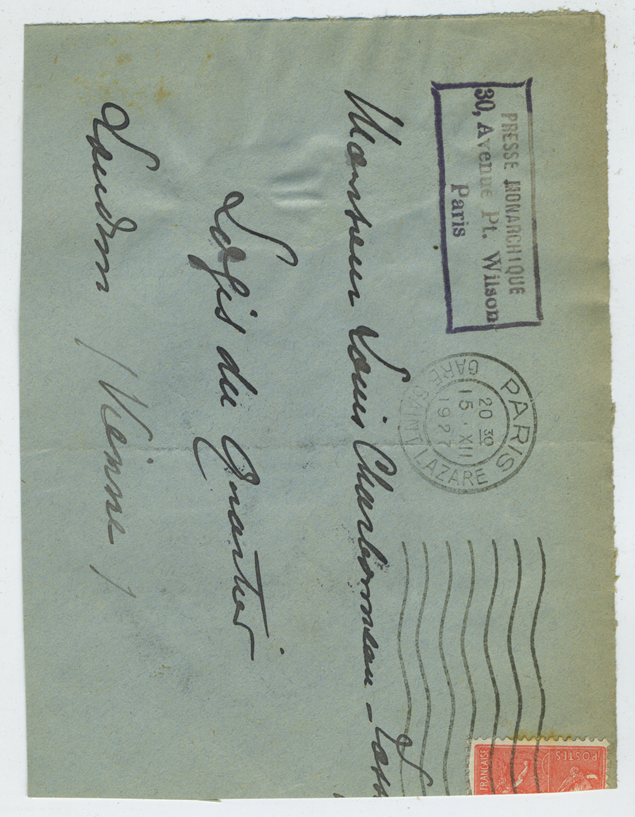 PRESSE MONARCHIQUE
30, Avenue Pt. Wilson
Paris
PARIS
GARE SAINT LAZARE
20 30
15 · XII
1927
POSTES
FRANÇAISE
Monsieur Louis Charbonneau-
Logis du Quartier
Loudun (Vienne)